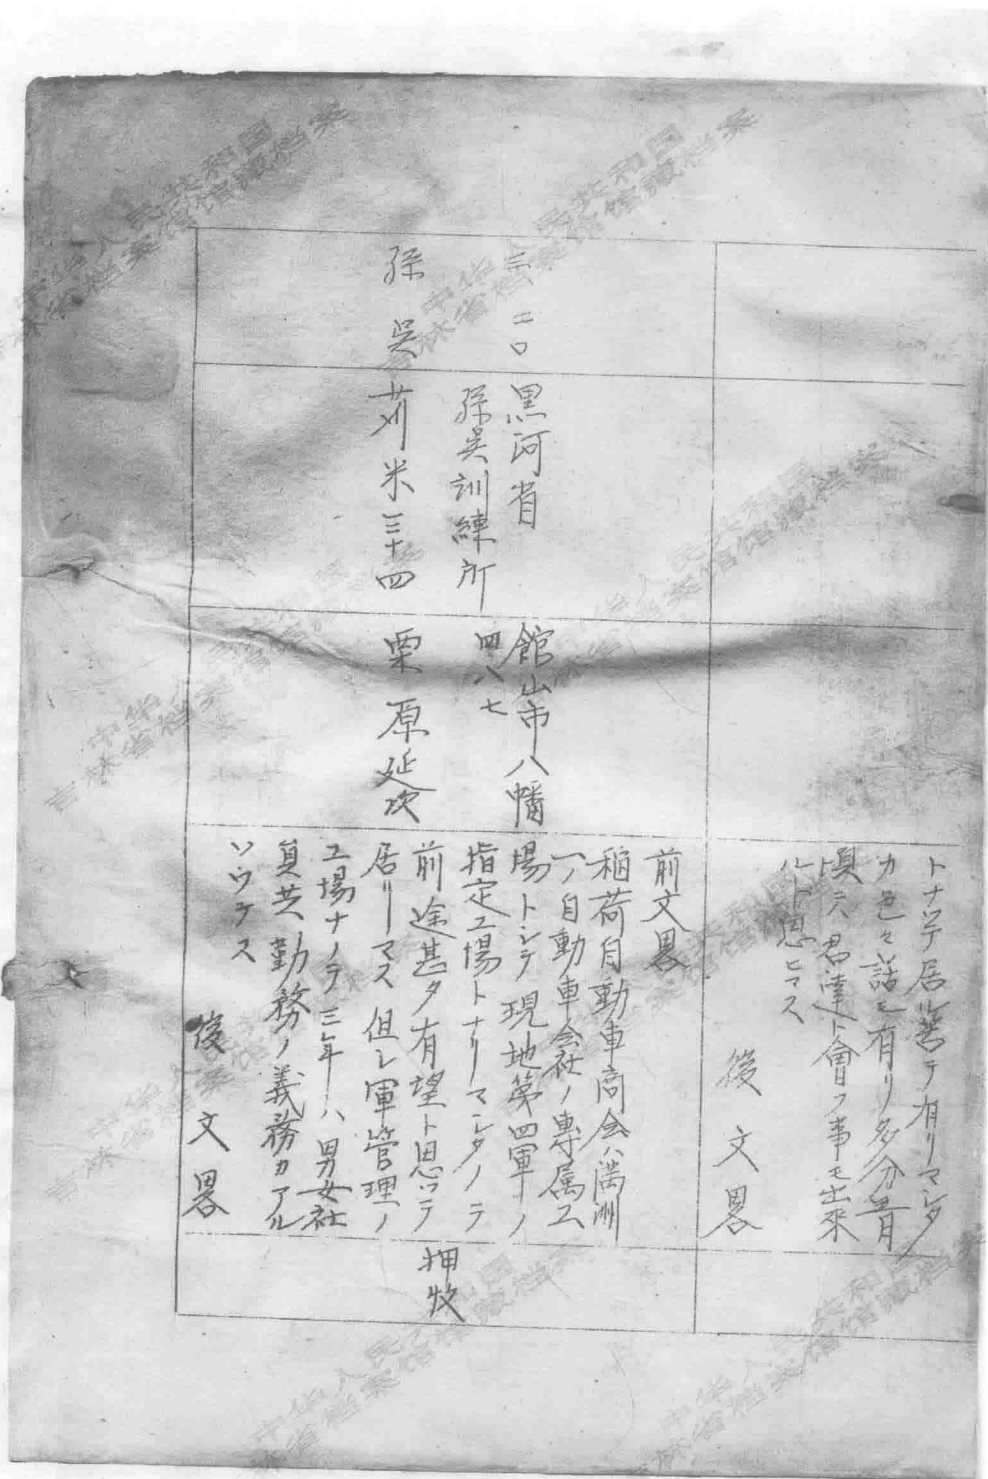 トナツテ居ル筈デ有リマシタ
カ色々話モ有リ多分五月
頃ハ君達ト會フ事モ出來
ルト思ヒマス
後文畧
三二〇
孫吳
黒河省
孫吳訓練所
苅米三十四
館山市八幡
四八七
栗原延次
前文畧
稲荷自動車商会ハ満洲
ノ自動車会社ノ専属工
場トシテ現地第四軍ノ
指定工場トナリマシタノテ
前途甚タ有望ト思ツテ
居リマス 但シ軍管理ノ
工場ナノテ三年ハ男女社
員共勤務ノ義務カアル
ソウテス
後文畧
押收
中华人民共和国
吉林省档案馆馆藏档案